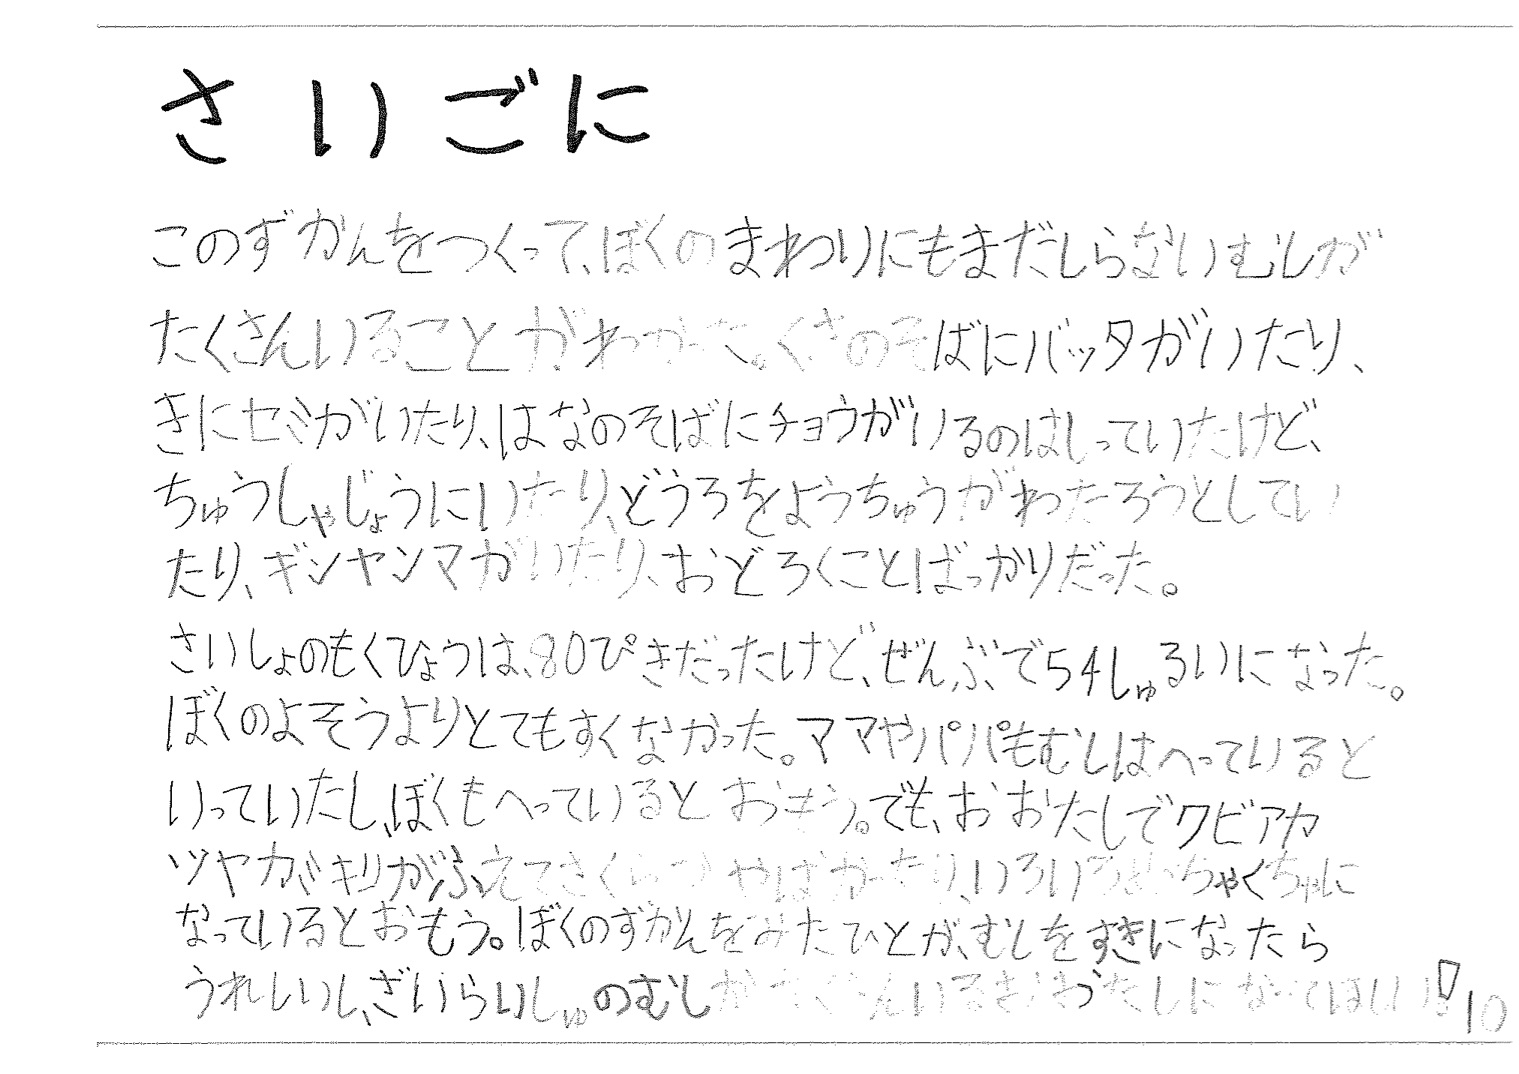 さいごに
このずかんをつくって、ぼくのまわりにもまだしらないむしが
たくさんいることがわかった。くさのそばにバッタがいたり、
きにセミがいたり、はなのそばにチョウがいるのはしっていたけど、
ちゅうしゃじょうにいたり、どうろをようちゅうがわたろうとしてい
たり、ギンヤンマがいたり、おどろくことばっかりだった。
さいしょのもくひょうは、80ぴきだったけど、ぜんぶで54しゅるいになった。
ぼくのよそうよりとてもすくなかった。ママやパパもむしはへっていると
いっていたし、ぼくもへっているとおもう。でも、おおたしでクビアカ
ツヤカミキリがふえてさくら やばかったり、いろいろめっちゃくちゃに
なっているとおもう。ぼくのずかんをみたひとが、むしをすきになったら
うれしいし、ざいらいしゅのむしがたくさんいるおおたしになってほしい
10